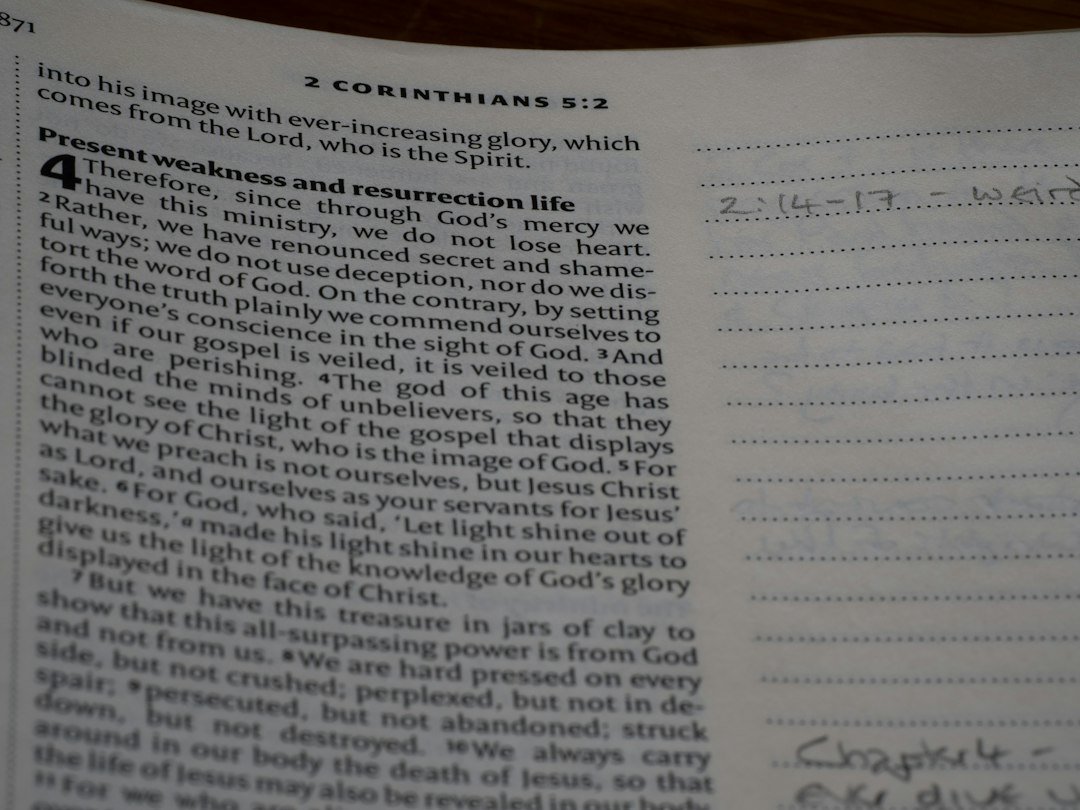 871
2 CORINTHIANS 5:2
into his image with ever-increasing glory, which
comes from the Lord, who is the Spirit.
Present weakness and resurrection life
4 Therefore, since through God's mercy we
have this ministry, we do not lose heart.
2 Rather, we have renounced secret and shame-
ful ways; we do not use deception, nor do we dis-
tort the word of God. On the contrary, by setting
forth the truth plainly we commend ourselves to
everyone's conscience in the sight of God. 3 And
even if our gospel is veiled, it is veiled to those
who are perishing. 4 The god of this age has
blinded the minds of unbelievers, so that they
cannot see the light of the gospel that displays
the glory of Christ, who is the image of God. 5 For
what we preach is not ourselves, but Jesus Christ
as Lord, and ourselves as your servants for Jesus'
sake. 6 For God, who said, 'Let light shine out of
darkness,' a made his light shine in our hearts to
give us the light of the knowledge of God's glory
displayed in the face of Christ.
7 But we have this treasure in jars of clay to
show that this all-surpassing power is from God
and not from us. 8 We are hard pressed on every
side, but not crushed; perplexed, but not in de-
spair; 9 persecuted, but not abandoned; struck
down, but not destroyed. 10 We always carry
around in our body the death of Jesus, so that
the life of Jesus may also be revealed in our body.
11 For we who are
2:14-17 - weird
Chapter 4 -